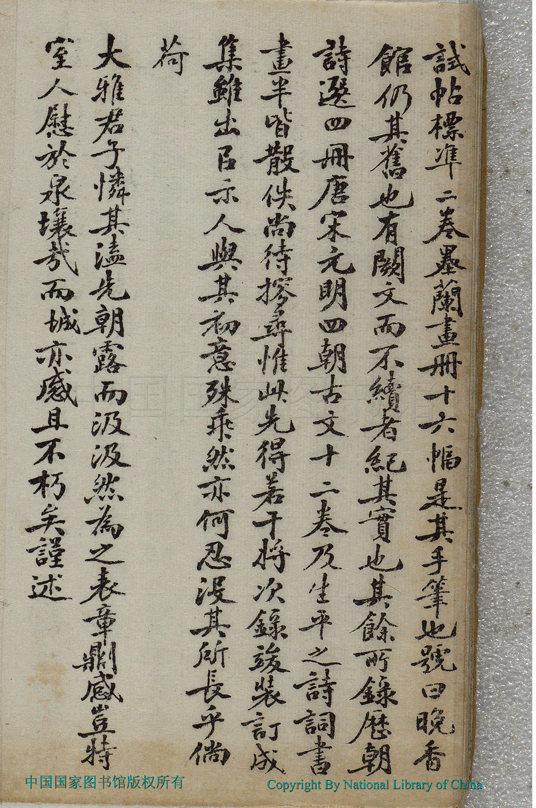 試帖標準二卷墨蘭畫冊十六幅是其手筆也號曰晚香
館仍其舊也有闕文而不續者紀其實也其餘所錄歷朝
詩選四冊唐宋元明四朝古文十二卷及生平之詩詞書
畫半皆散佚尚待搜尋惟此先得若干將次錄竣裝訂成
集雖出以示人與其初意殊乖然亦何忍沒其所長乎倘
荷
大雅君子憐其溘先朝露而汲汲然為之表章鼎感豈特
室人慰於泉壤哉而城亦感且不朽矣謹述
中国国家图书馆版权所有
Copyright By National Library of China